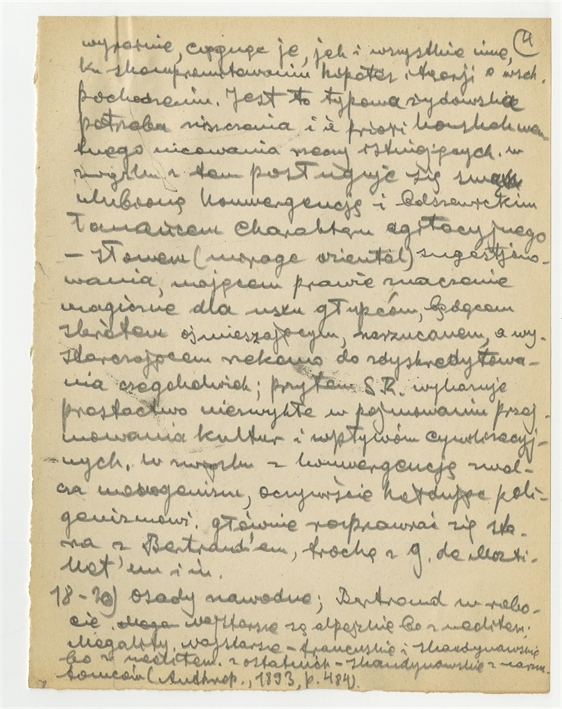 4
wyraźnie, ciągnąc je, jak i wszystkie inne,
ku skompromitowaniu hipotez i teorji o wsch.
pochodzeniu. Jest to typowa żydowska
potrzeba niszczenia i à priori
nicowania rzeczy istniejących. w
związku z tem posługuje się swoją
ulubioną konwergencją i bolszewickim
łamańcem charakteru agitacyjnego
— słowem (mirage oriental) sugestjono-
wania, mającem prawie znaczenie
magiczne dla uszu głupców, będącem
skrótem ośmieszającym, narzucanem, a wy-
starczającem rzekomo do zdyskredytowa-
nia czegokolwiek; przytem S.R. wykazuje
prostactwo niezwykłe w pojmowaniu przej-
mowania kultur i wpływów cywilizacyj-
nych. w związku z konwergencją zwal-
cza monogenizm, oczywiście hołdując poli-
genizmowi. głównie rozprawia się
z Bertrand'em, trochę z g. de Morti-
llet'em i in.
18-20) osady nawodne; Bertrand w
najstarsze są alpejskie bo z neolitem;
Megality. najstarsze – francuskie i skandynawskie
bo z neolitem. z ostatnich – skandynawskie z
(Anthrop., 1893, p. 484).